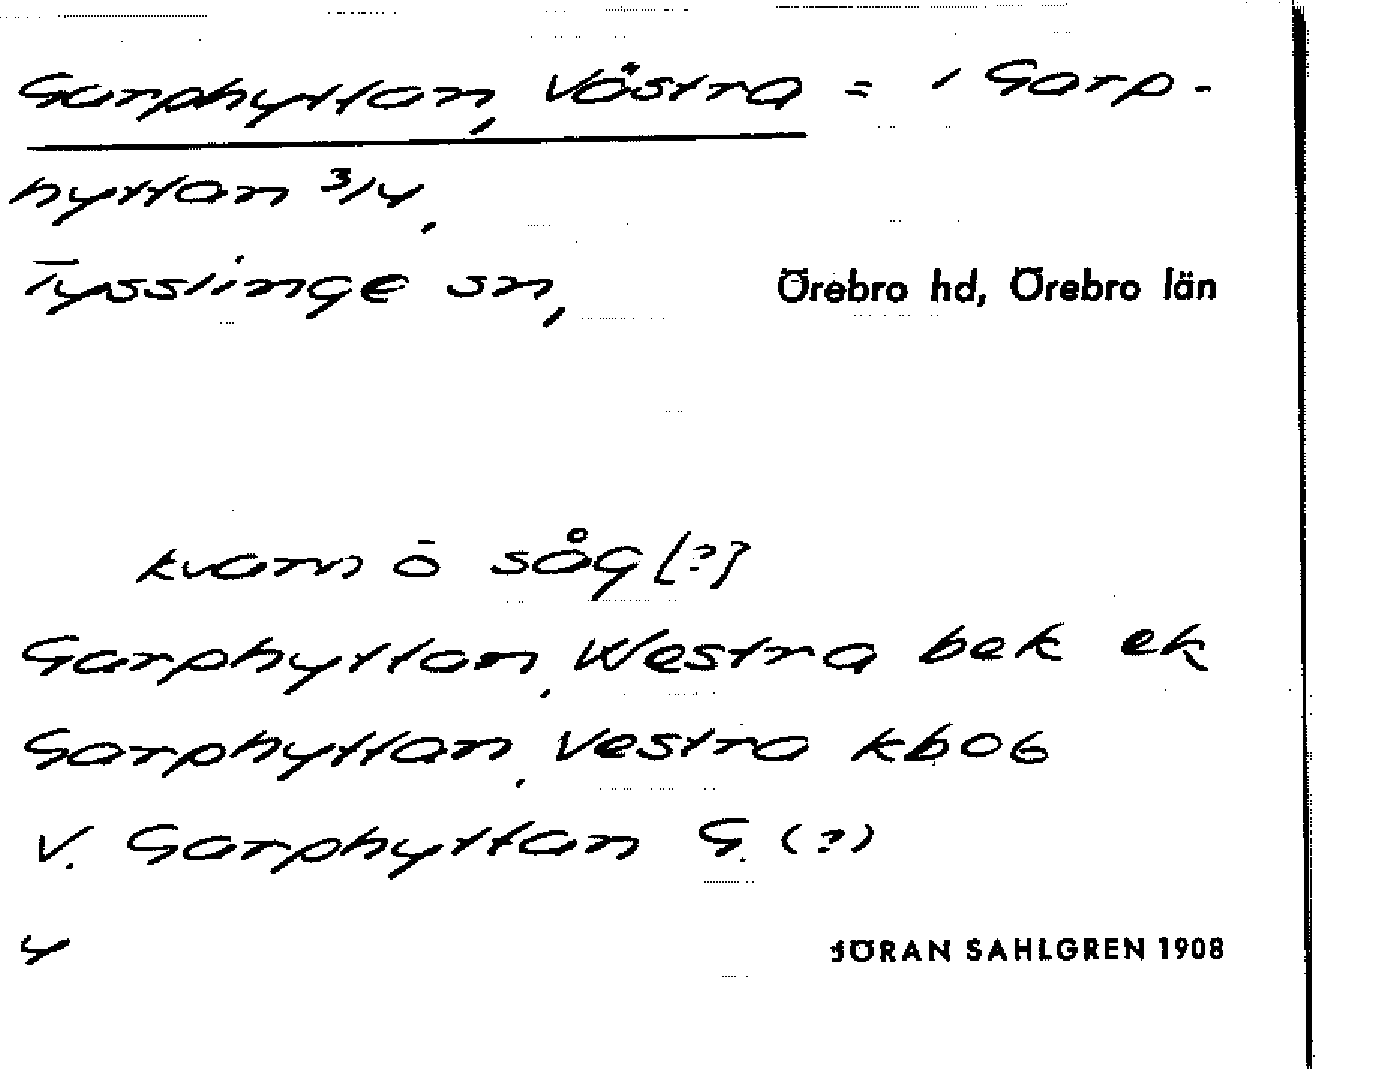 Garphyttan, Västra = 1 Garp-
hyttan 3/4,
Tysslinge sn, Örebro hd, Örebro län
kvarn o såg [?]
Garphyttan, Westra bek ek
Garphyttan, Vestra kb06
V. Garphyttan G. (?)
4 JÖRAN SAHLGREN 1908